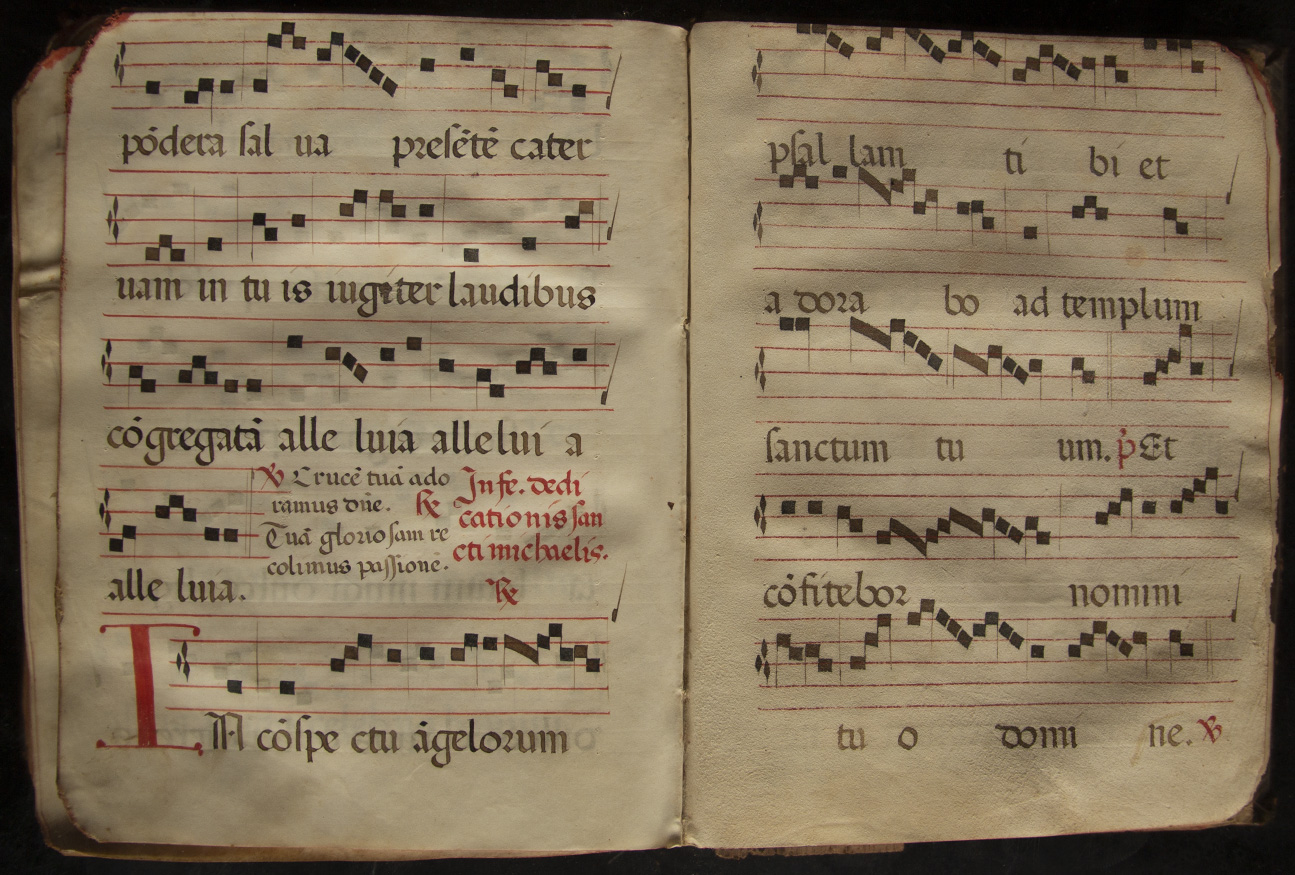 põdera sal ua presẽtẽ cater
uam in tu is iugiter laudibus
cõgregatã alle luia allelui a
℣ Crucẽ tuã ado
ramus dñe. ℟
Tuã gloriosam re
colimus passione.
In fe. dedi
cationis san
cti michaelis.
alle luia. ℟
IN cõspe ctu ãgelorum
psal lam ti bi et
a dora bo ad templum
sanctum tu um. p̃ Et
cõfitebor nomini
tu o domi ne. ℣